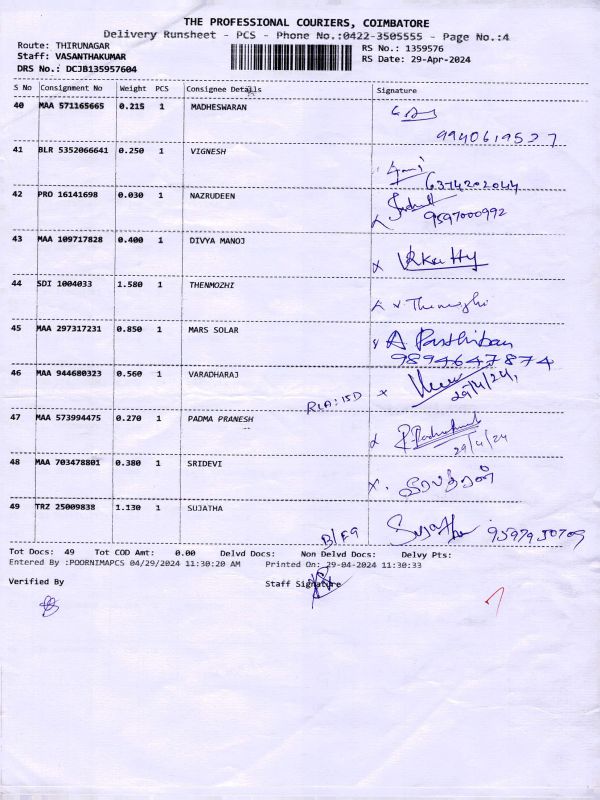 THE PROFESSIONAL COURIERS, COIMBATORE
Delivery Runsheet - PCS - Phone No.:0422-3505555 - Page No.:4
Route: THIRUNAGAR RS No.: 1359576
Staff: VASANTHAKUMAR RS Date: 29-Apr-2024
DRS No.: DCJB135957604
S No Consignment No Weight PCS Consignee Details Signature
40 MAA 571165665 0.215 1 MADHESWARAN
9940619527
41 BLR 5352066641 0.250 1 VIGNESH
6374202044
42 PRO 16141698 0.030 1 NAZRUDEEN
9597000992
43 MAA 109717828 0.400 1 DIVYA MANOJ
44 SDI 1004033 1.580 1 THENMOZHI
Thenmozhi
45 MAA 297317231 0.850 1 MARS SOLAR A Parthiban
9894647874
46 MAA 944680323 0.560 1 VARADHARAJ
29/4/24,
47 MAA 573994475 0.270 1 PADMA PRANESH
29/4/24
48 MAA 703478801 0.380 1 SRIDEVI
49 TRZ 25009838 1.130 1 SUJATHA
B/F9 Sujatha 9597950709
Tot Docs: 49 Tot COD Amt: 0.00 Delvd Docs: Non Delvd Docs: Delvy Pts:
Entered By :POORNIMAPCS 04/29/2024 11:30:20 AM Printed On: 29-04-2024 11:30:33
Verified By Staff Signature